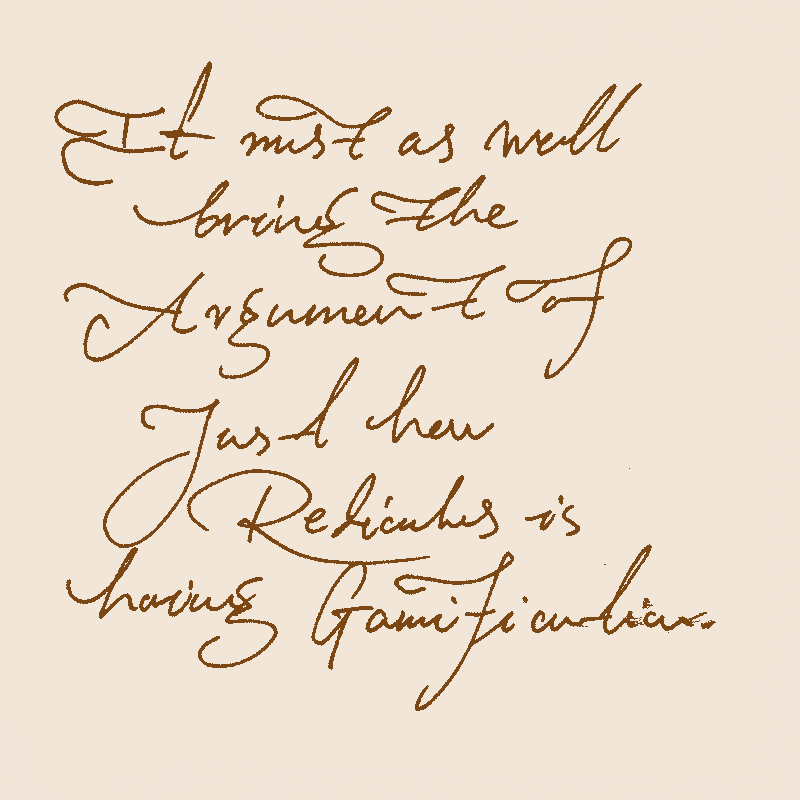 It must as well
bring the
Argument of
Just how
Rediculus is
having Gamification.